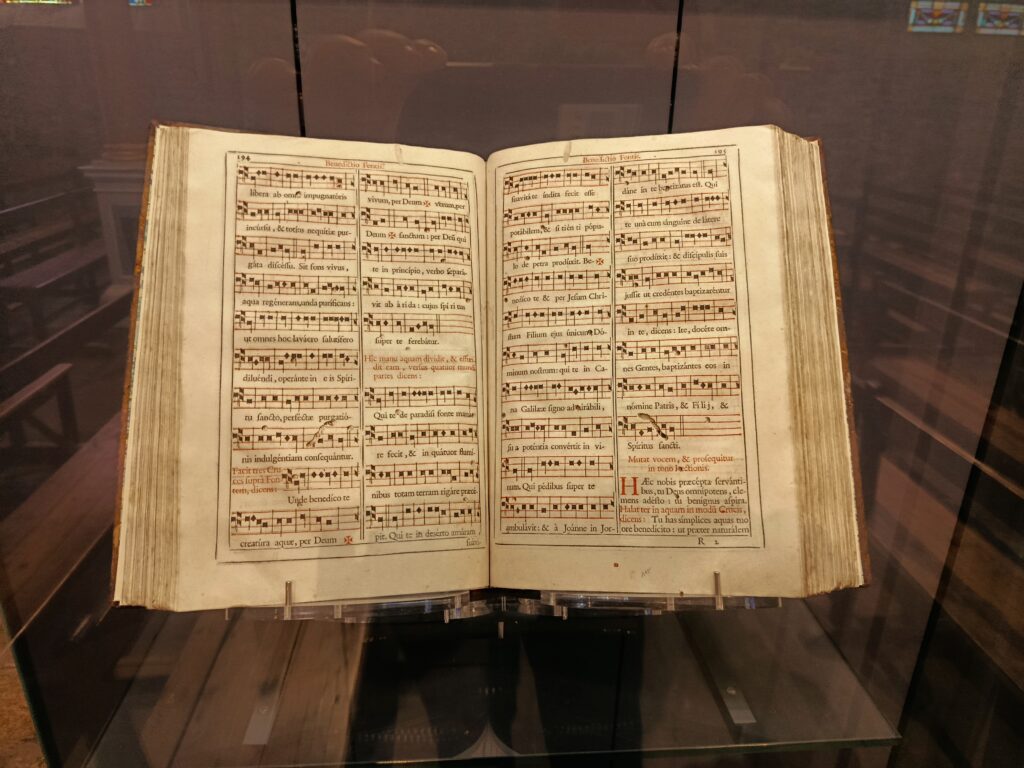 194
Benedictio Fontis.
libera ab omni impugnatóris
incursu, & totíus nequítiæ pur-
gáta discéssu. Sit fons vivus,
aqua regénerans, unda puríficans:
ut omnes hoc lavácro salutífero
diluéndi, operánte in eis Spíri-
tu sancto, perféctæ purgatió-
nis indulgéntiam consequántur.
Facit tres Cru-
ces supra Fon-
tem, dicens:
Unde benedíco te
creatúra aquæ, per Deum ✠
vivum, per Deum ✠ verum, per
Deum ✠ sanctum: per Deũ qui
te in princípio, verbo separá-
vit ab árida: cujus spíritus
super te ferebátur.
Hîc manu aquam dividit, & effun-
dit eam, versus quatuor mundi
partes dicens:
Qui te de paradísi fonte manáre
fecit, & in quátuor flumí-
nibus totam terram rigáre præcé-
pit. Qui te in desérto amáram
suavi-
195
Benedictio Fontis.
suavitáte índita fecit esse
potábilem, & sitiénti pópu-
lo de petra prodúxit. Be- ✠
nedíco te & per Jesum Chri-
stum Fílium ejus únicum Dó-
minum nostrum: qui te in Ca-
na Galilææ signo admirábili,
sua poténtia convértit in vi-
num. Qui pédibus super te
ambulávit: & à Joánne in Jor-
dáne in te baptizátus est. Qui
te unà cum sánguine de látere
suo prodúxit: & discípulis suis
jussit ut credéntes baptizaréntur
in te, dicens: Ite, docéte om-
nes Gentes, baptizántes eos in
nómine Patris, & Fílij, &
Spíritus sancti.
Mutat vocem, & prosequitur
in tono lectionis.
HÆc nobis præcépta servánti-
bus, tu Deus omnípotens, cle-
mens adésto: tu benígnus aspíra.
Halat ter in aquam in modũ Crucis,
dicens: Tu has símplices aquas tuo
ore benedícito: ut præter naturálem
R 2